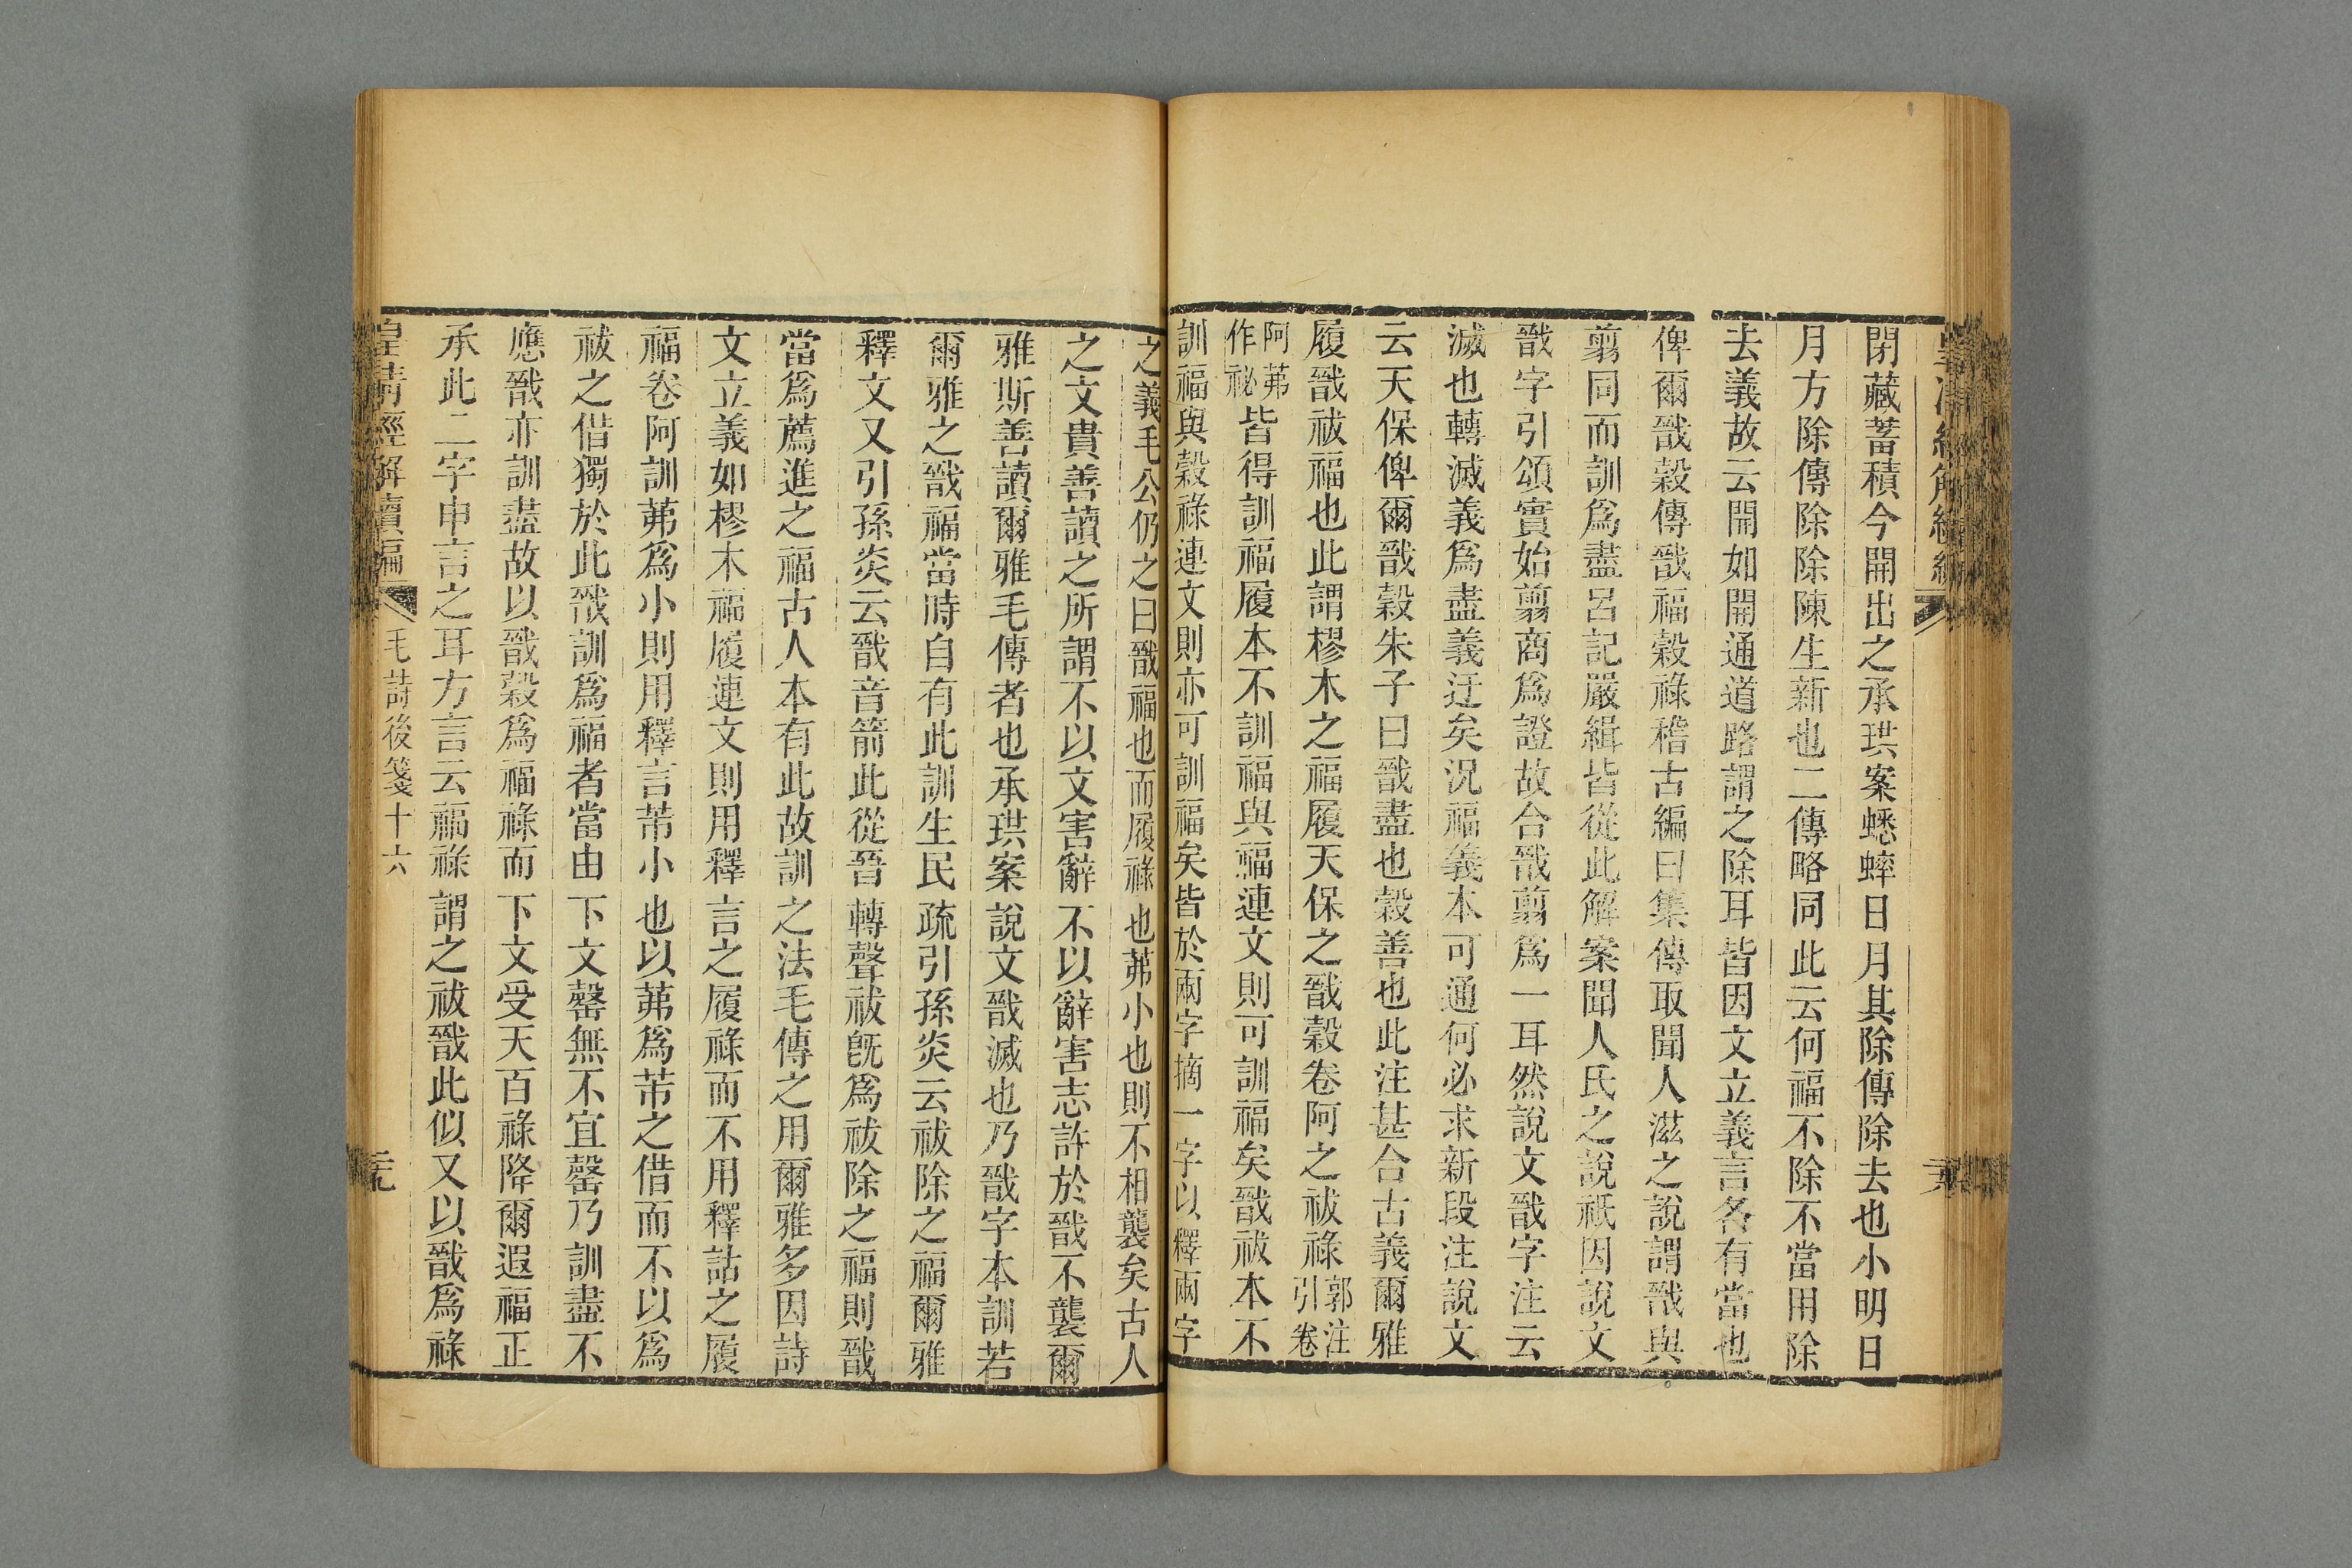 閉藏蓄積今開出之承珙案蟋蟀日月其除傳除去也小明日
月方除傳除除陳生新也二傳略同此云何福不除不當用除
去義故云開如開通道路謂之除耳皆因文立義言各有當也
俾爾戩穀傳戩福穀祿稽古編曰集傳取聞人滋之說謂戩與
翦同而訓爲盡呂記嚴緝皆從此解案聞人氏之說祇因說文
戩字引頌實始翦商爲證故合戩翦爲一耳然說文戩字注云
滅也轉滅義爲盡義迂矣況福義本可通何必求新段注說文
云天保俾爾戩穀朱子曰戩盡也穀善也此注甚合古義爾雅
履戩祓福也此謂樛木之福履天保之戩穀卷阿之祓祿郭注引卷
阿茀作祕皆得訓福履本不訓福與福連文則可訓福矣戩祓本不
訓福與穀祿連文則亦可訓福矣皆於兩字摘一字以釋兩字
之義毛公仍之曰戩福也而履祿也茀小也則不相襲矣古人
之文貴善讀之所謂不以文害辭不以辭害志許於戩不襲爾
雅斯善讀爾雅毛傳者也承珙案說文戩滅也乃戩字本訓若
爾雅之戩福當時自有此訓生民疏引孫炎云祓除之福爾雅
釋文又引孫炎云戩音箭此從晉轉聲祓旣爲祓除之福則戩
當爲薦進之福古人本有此故訓之法毛傳之用爾雅多因詩
文立義如樛木福履連文則用釋言之履祿而不用釋詁之履
福卷阿訓茀爲小則用釋言芾小也以茀爲芾之借而不以爲
祓之借獨於此戩訓爲福者當由下文罄無不宜罄乃訓盡不
應戩亦訓盡故以戩穀爲福祿而下文受天百祿降爾遐福正
承此二字申言之耳方言云福祿謂之祓戩此似又以戩爲祿
皇清經解續編
毛詩後箋十六
二十九